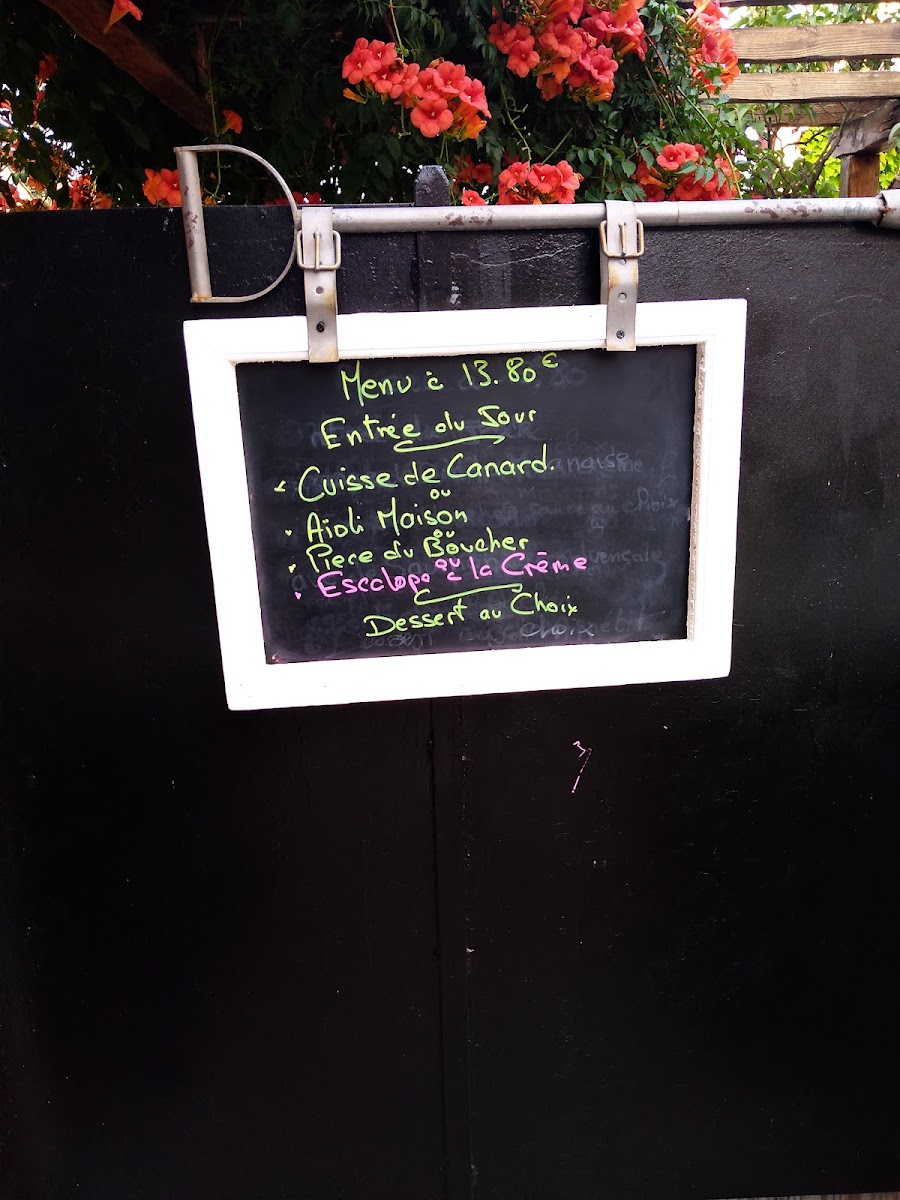 Menu à 13.80€
Entrée du Jour
Cuisse de Canard.
ou
Aïoli Maison
ou
Piece du Boucher
ou
Escalope à la Crème
Dessert au Choix